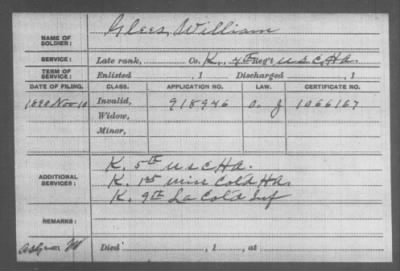 Glees, William
NAME OF SOLDIER:
SERVICE: Late rank, Co. K, 4th Reg't U S C, H A.
TERM OF SERVICE: Enlisted , 1 Discharged , 1
DATE OF FILING. CLASS. APPLICATION NO. LAW. CERTIFICATE NO.
1890 Nov 10 Invalid, 918946 1066167
Widow,
Minor,
K. 5th U S C H A.
ADDITIONAL SERVICES: K. 1st Miss Cold H A.
K. 9th La Cold Inf
REMARKS:
Died , 1 , at